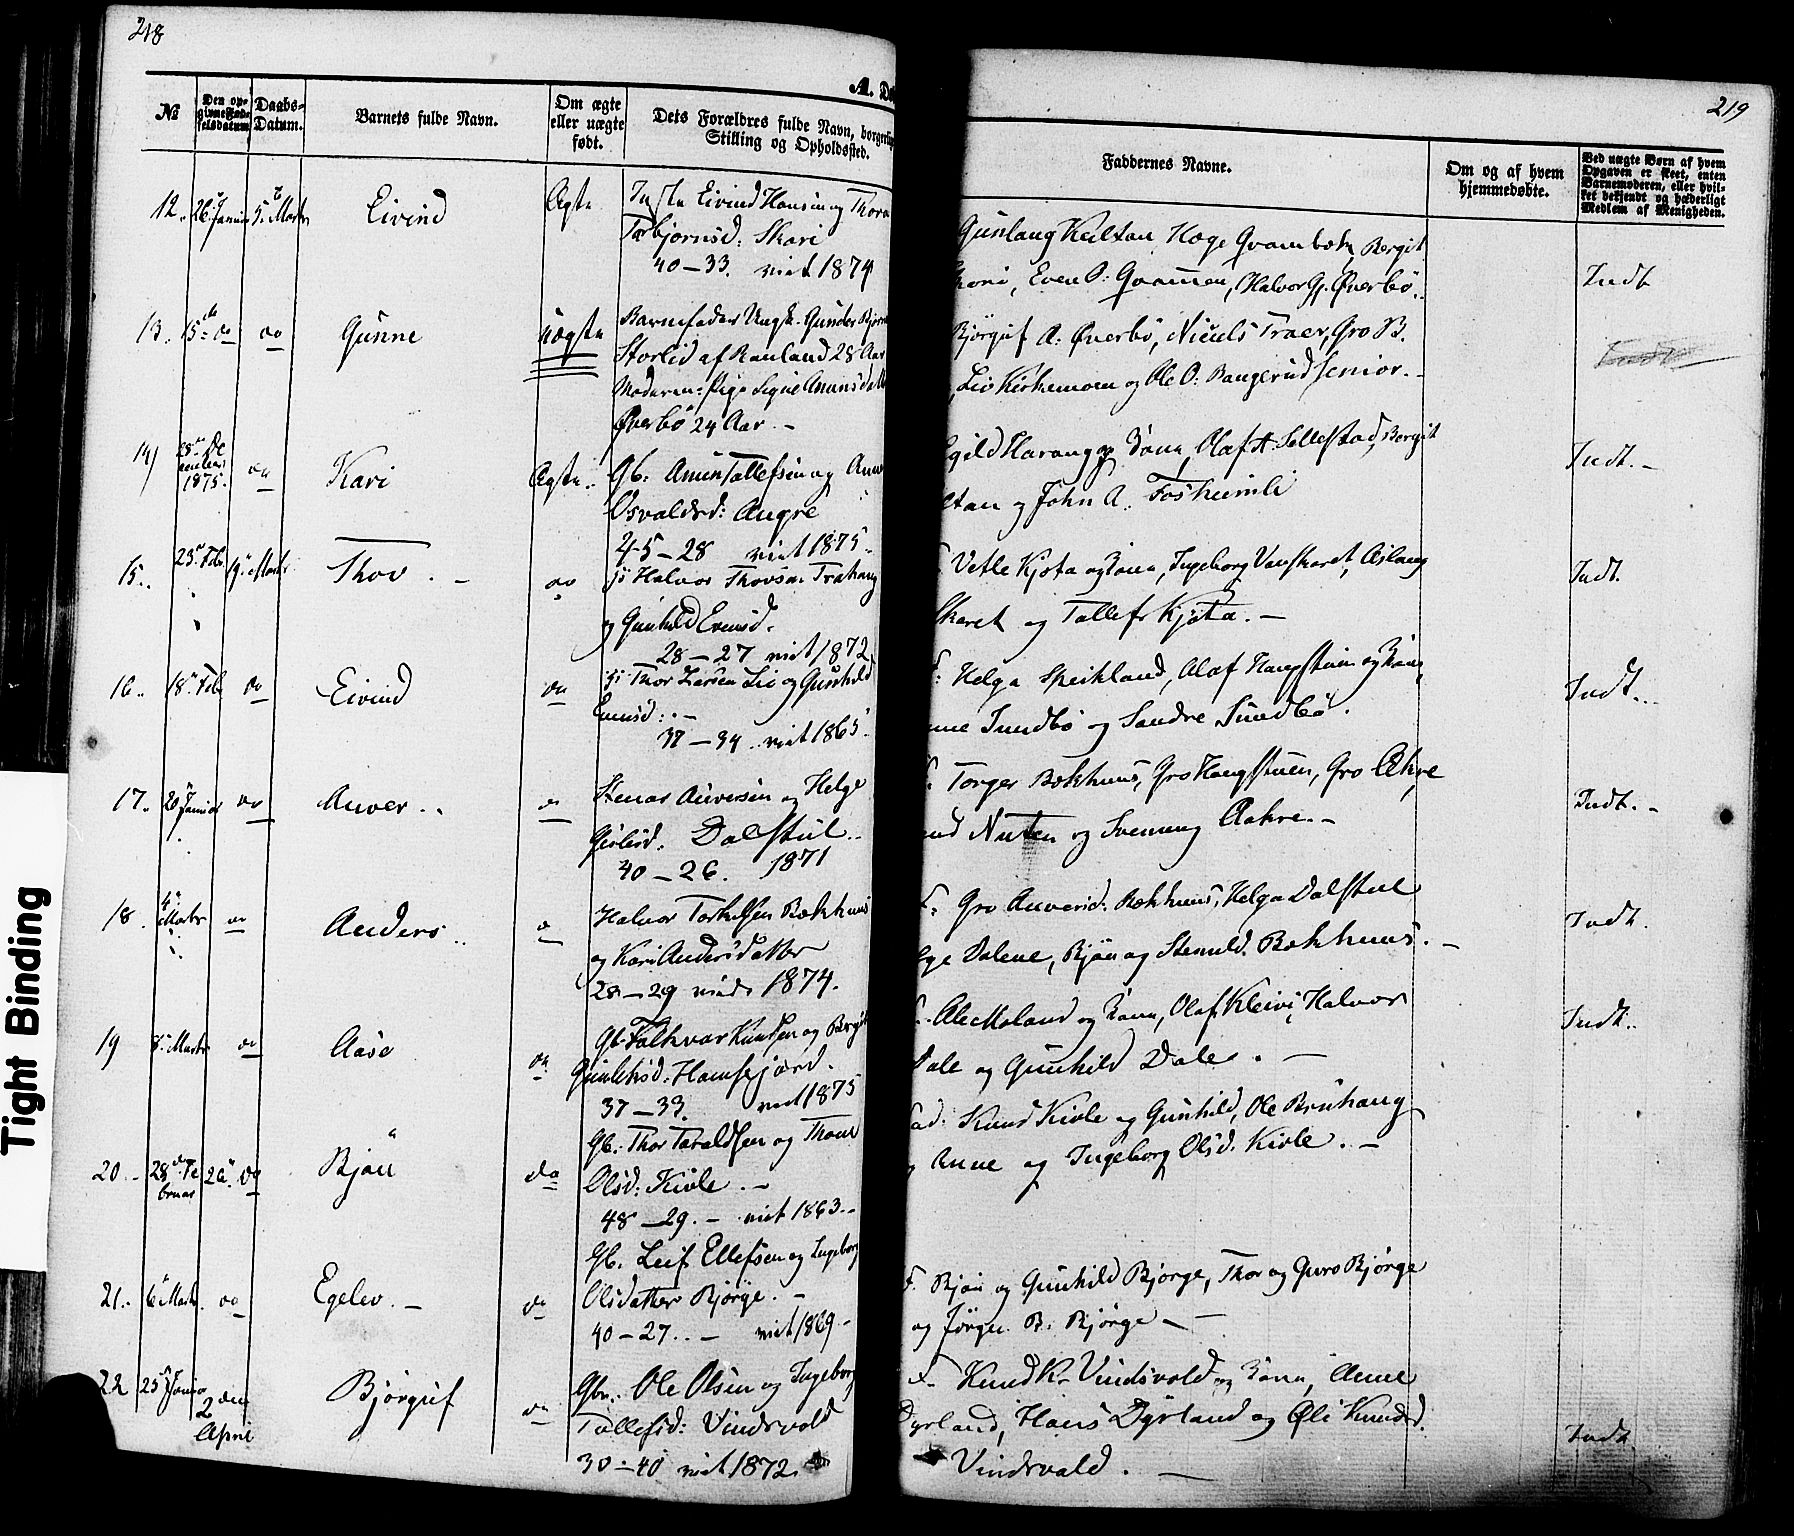 218
A. Dø
№
Den op-
givne Fød-
selsdatum
Daabs-
Datum.
Barnets fulde Navn.
Om ægte
eller uægte
født.
Dets Forældres fulde Navn, borgerlig
Stilling og Opholdssted.
12. 26 Januar 5. Marts Eivind Ægte Eivind Hansen og Thora
Torbjørnsd: Skori
40 – 33. viet 1874
13. 15 do do Gunne uægte Barnefader Ungk. Gunder Bjørn
Storlid af Rauland 28 Aar
Moderen: Pige Signe Amunsdatt
Øverbø 24 Aar. –
14) 28 De
cember
1875. do Kari Ægte. Gb: Amun Tollefsen og Anne
Osvaldsd: Augre
45 – 28 viet 1875.
15. 23 Feb. 19 Marts Thov. – do Halvor Thovsen Trahaug
og Gunhild Evensd.
28 – 27 viet 1872
16. 18 Feb do Eivind do Thor Larsen Lio og Gunhild
Evensd: –
37 – 34 viet 1865
17. 20 Januar do Anver. do Stenar Anversen og Helge
Dalstul
40 – 26. 1871
18. 4 Marts do Anders do Halvor Torkelsen Bækhuus
og Kari Andersdatter
28 – 29 viede 1874.
19 8. Marts do Aase do Gb. Folkvar Knudsen og Bergit
Gunleksd: Hamsefjord.
37 – 33. viet 1875
20. 28 Fe
bruar 26. do Bjøn do Gb. Thor Taraldsen og Thone
Olsd: Kivle. –
48 – 29. – viet 1863. –
21. 6 Marts. do Egelev. – do Gb. Leif Ellefsen og Ingeborg
Olsdatter Bjørge. –
40 – 27. – viet 1869 –
22 25 Januar den
2
April Bjørguf do Gbr. Ole Olsen og Ingeborg
Tollefsd: Vindsvold
30 – 40 viet 1872.
219
Faddernes Navne.
Om og af hvem
hjemmedøbte.
Ved uægte Børn af hvem
Opgaven er skeet, enten
Barnemoderen, eller hvil-
ket bekjendt og hæderligt
Medlem af Menigheden.
Gunlaug Kultan, Hoge Qvambæk, Bergit
Skori, Even P: Qvammen, Halvor Gj. Øverbø. Indt
Bjørguf A. Øverbø, Niculs Traer, Gro B.
Lio Kirkemoen og Ole O: Baugerud senior. –
Egild Haraug og Kona, Olaf A. Sellestad, Bergit
ltan og John A. Fosheimli Indt. –
Vetle Kjøta og Kona, Ingeborg Vaaskaret, Aslaug
Skaret og Tollef Kjøta. – Indt.
F: Helga Speikland, Olaf Haugstuen og Kone,
nne Sundbø og Sondre Sundbø. Indt.
F: Torger Bækhuus, Gro Haugstuen, Gro Aakre
nd Nuten og Svenung Aakre. – Indt. –
F: Gro Anversd: Bækhuus, Helga Dalstul
ge Dalene, Bjøn og Stenuld. Bækhuus. – Indt.
F. Ole Moland og Kona, Olaf Kleivi, Halvor
Dale og Gunhild Dale. – Indt.
ad: Knud Kivle og Gunhild, Ole Bruhaug
Anne og Ingeborg Olsd. Kivle. –
F. Bjøn og Gunhild Bjørge, Thor og Guro Bjørge
og Jørgen B. Bjørge –
F. Knud K. Vindsvold og Kona, Anne
Dyrland, Hans Dyrland og Øli Knudsd.
Vindsvald. – Indt.
Tight Binding